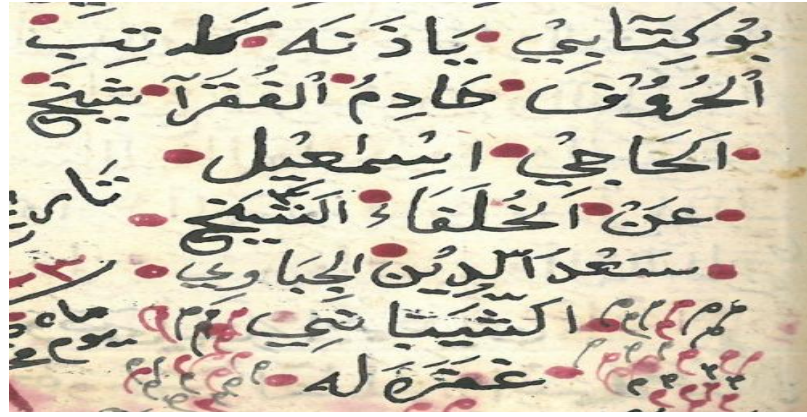 بُو كِتَابِيْ يَاذَنَه كَاتِبْ
اَلْحُرُوْفْ خَادِمُ الْفُقَرَآ شَيْخْ
اَلْحَاجِيْ اِسْمٰعِيْل
عَنْ اَلْخُلَفَاءُ اَلشَّيْخْ
سَعْدَ الدِّيْن اَلْجِبَاوِي
اَلشَّيْبَانِيْ
غَفَرَ لَه
تاريخ
يوم
ماه